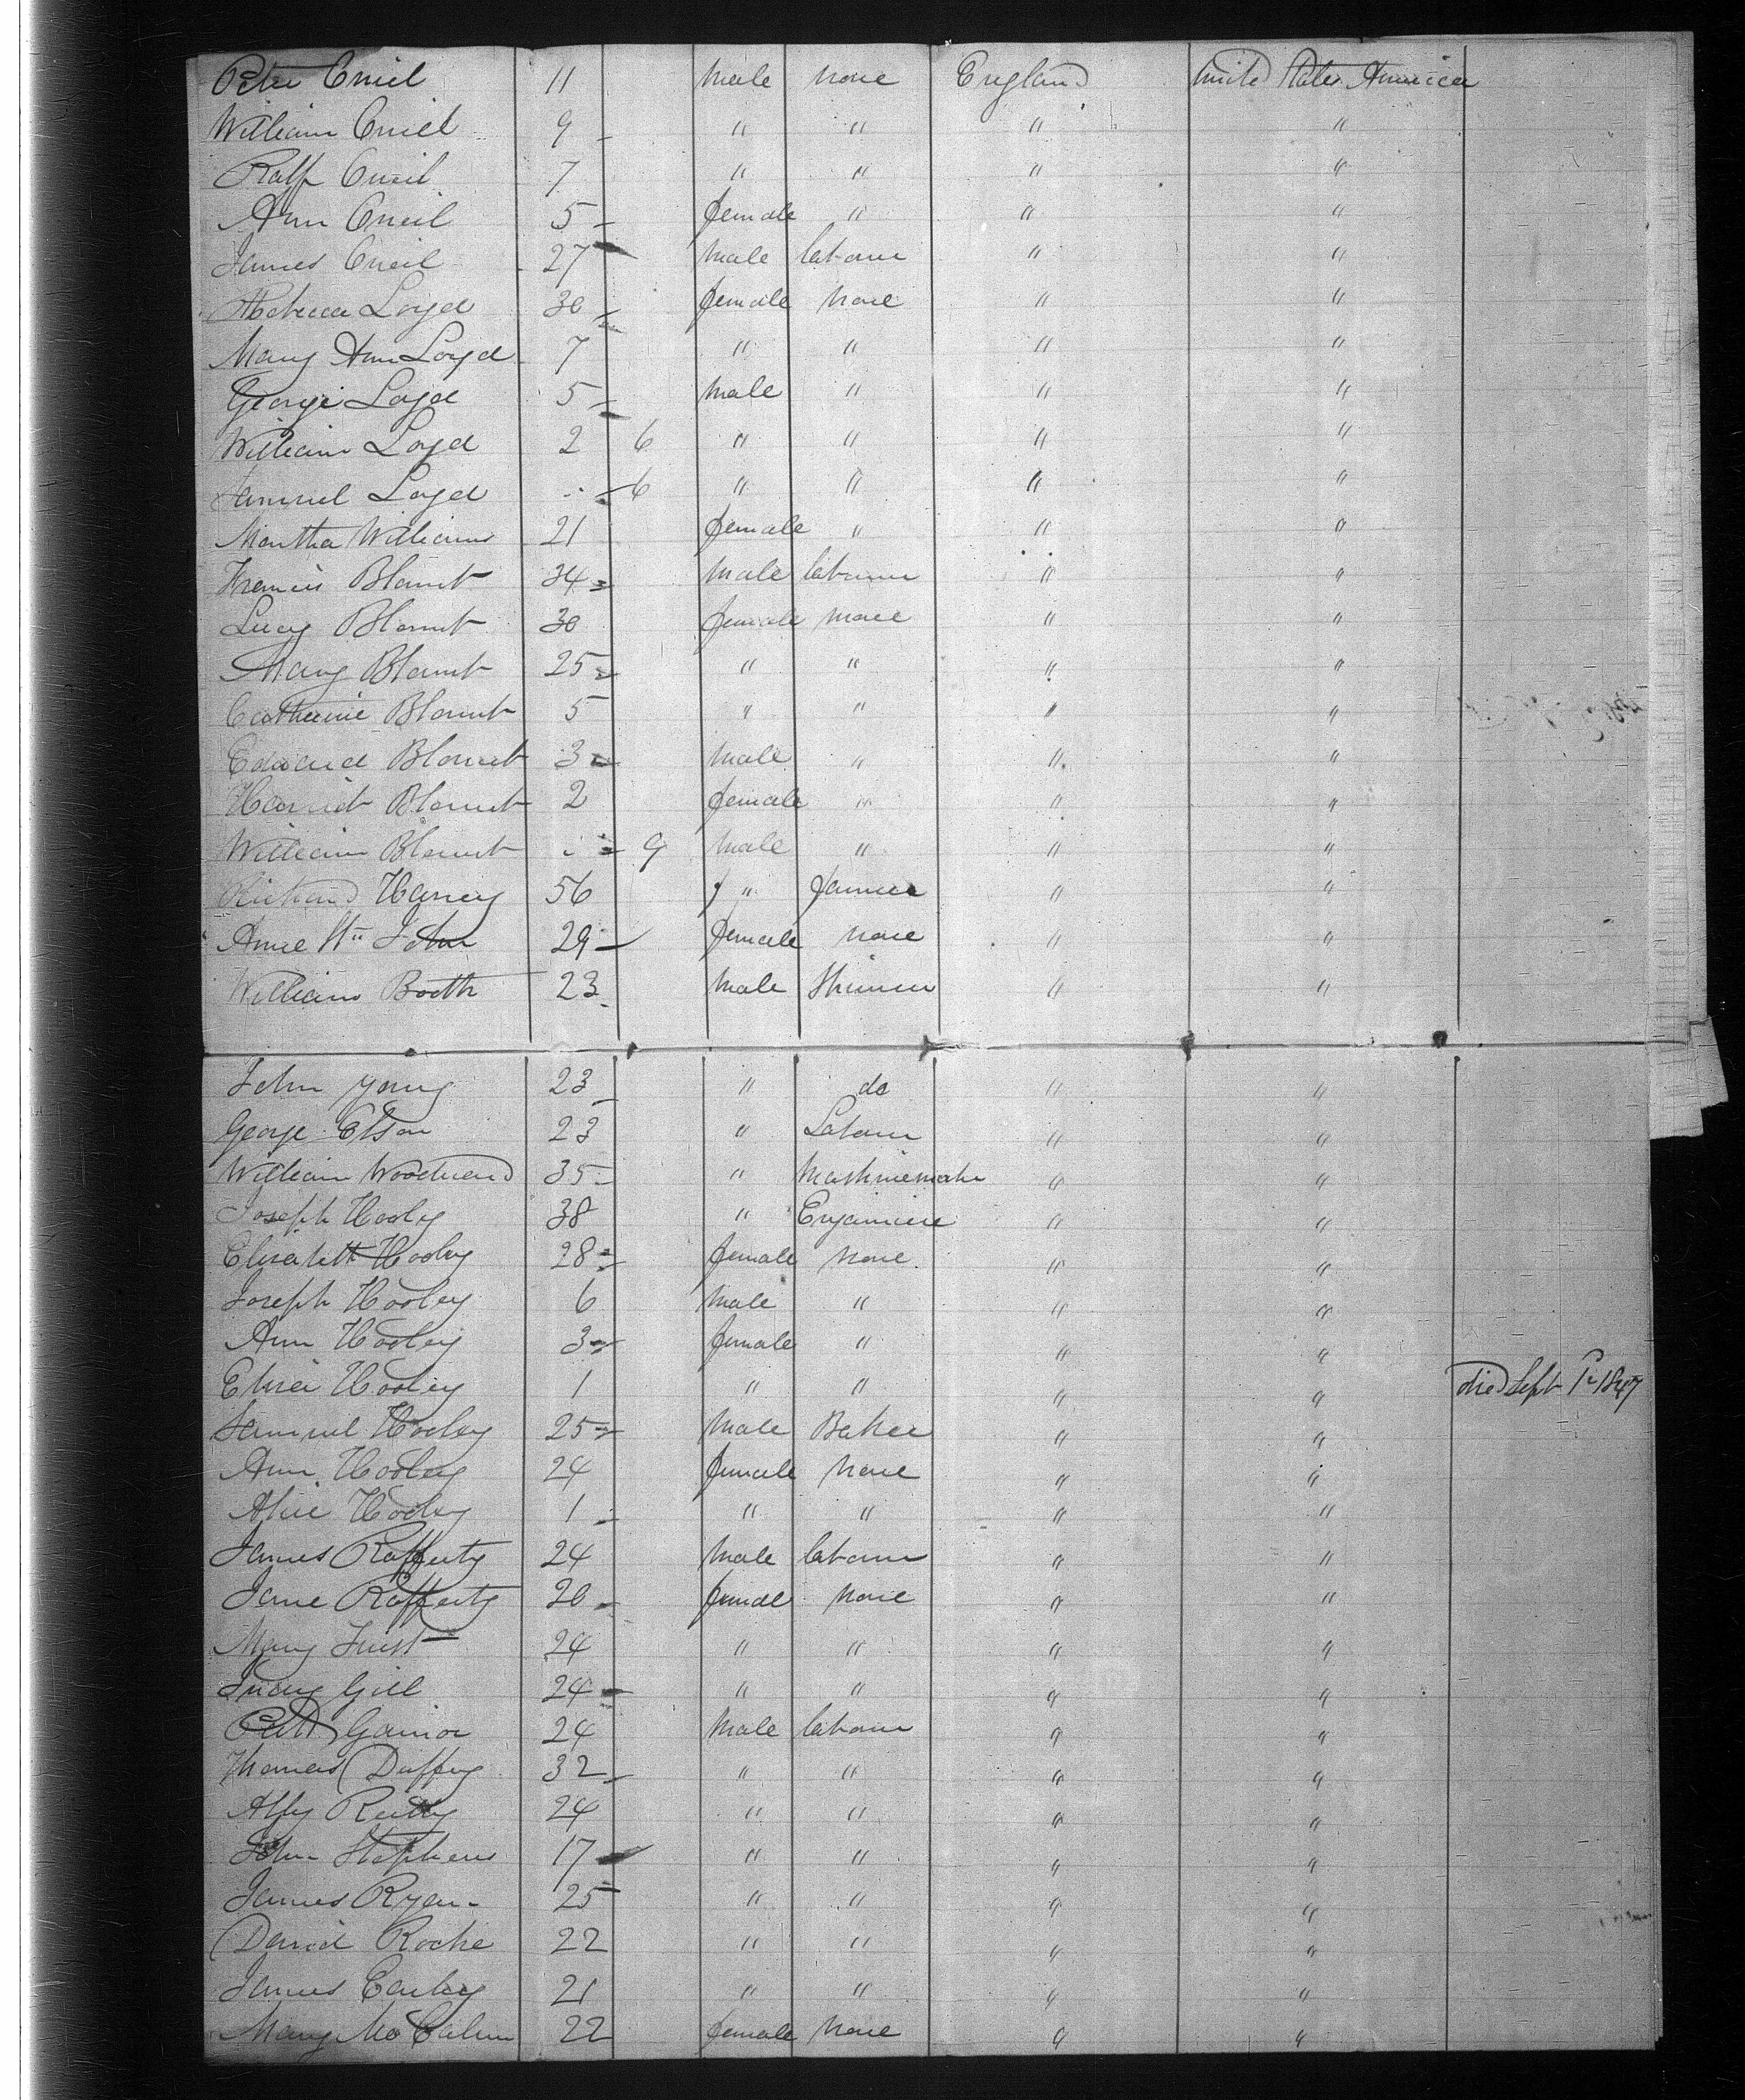 Peter Oneil 11 male none England United States America
William Oneil 9 " " " "
Ralf Oneil 7 " " " "
Ann Oneil 5 female " " "
James Oneil 27 male labour " "
Rebecca Loyd 30 female none " "
Mary Ann Loyd 7 " " " "
George Loyd 5 male " " "
William Loyd 2 6 " " " "
Samuel Loyd 6 " " " "
Martha Williams 21 female " " "
Francis Blount 34 male labour " "
Lucy Blount 30 female none " "
Mary Blount 25 " " " "
Catherine Blount 5 " " " "
Edward Blount 3 male " " "
Harriet Blount 2 female " " "
William Blount 9 male " " "
Richard Harvey 56 " farmer " "
Anne St John 29 female none " "
William Booth 23 male " "
John Young 23 " do " "
George Elson 23 " Labour " "
William Woodward 35 " Mashinemaker " "
Joseph Hooley 38 " " "
Elisabeth Hooley 28 female none " "
Joseph Hooley 6 male " " "
Ann Hooley 3 female " " "
Eliza Hooley 1 " " " " died Sept 1847
Samuel Hooley 25 male Baker " "
Ann Hooley 24 female none " "
Alice Hooley 1 " " " "
James Rafferty 24 male labour " "
Jane Rafferty 20 femal none " "
Mary 24 " " " "
Gill 24 " " " "
Gainor 24 male labour " "
Thomas Duffey 32 " " " "
Reilly 24 " " " "
John Stephens 17 " " " "
James Ryan 25 " " " "
David Roche 22 " " " "
James 21 " " " "
Mary 22 female none " "